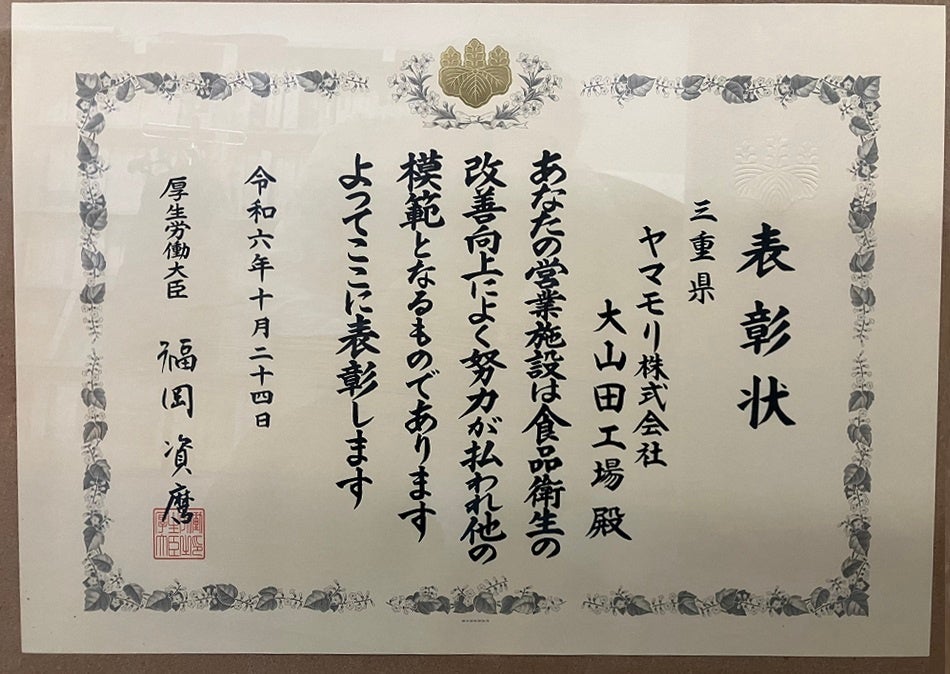 表彰状
三重県
ヤマモリ株式会社
大山田工場 殿
あなたの営業施設は食品衛生の
改善向上によく努力が払われ他の
模範となるものであります
よってここに表彰します
令和六年十月二十四日
厚生労働大臣 福岡 資麿